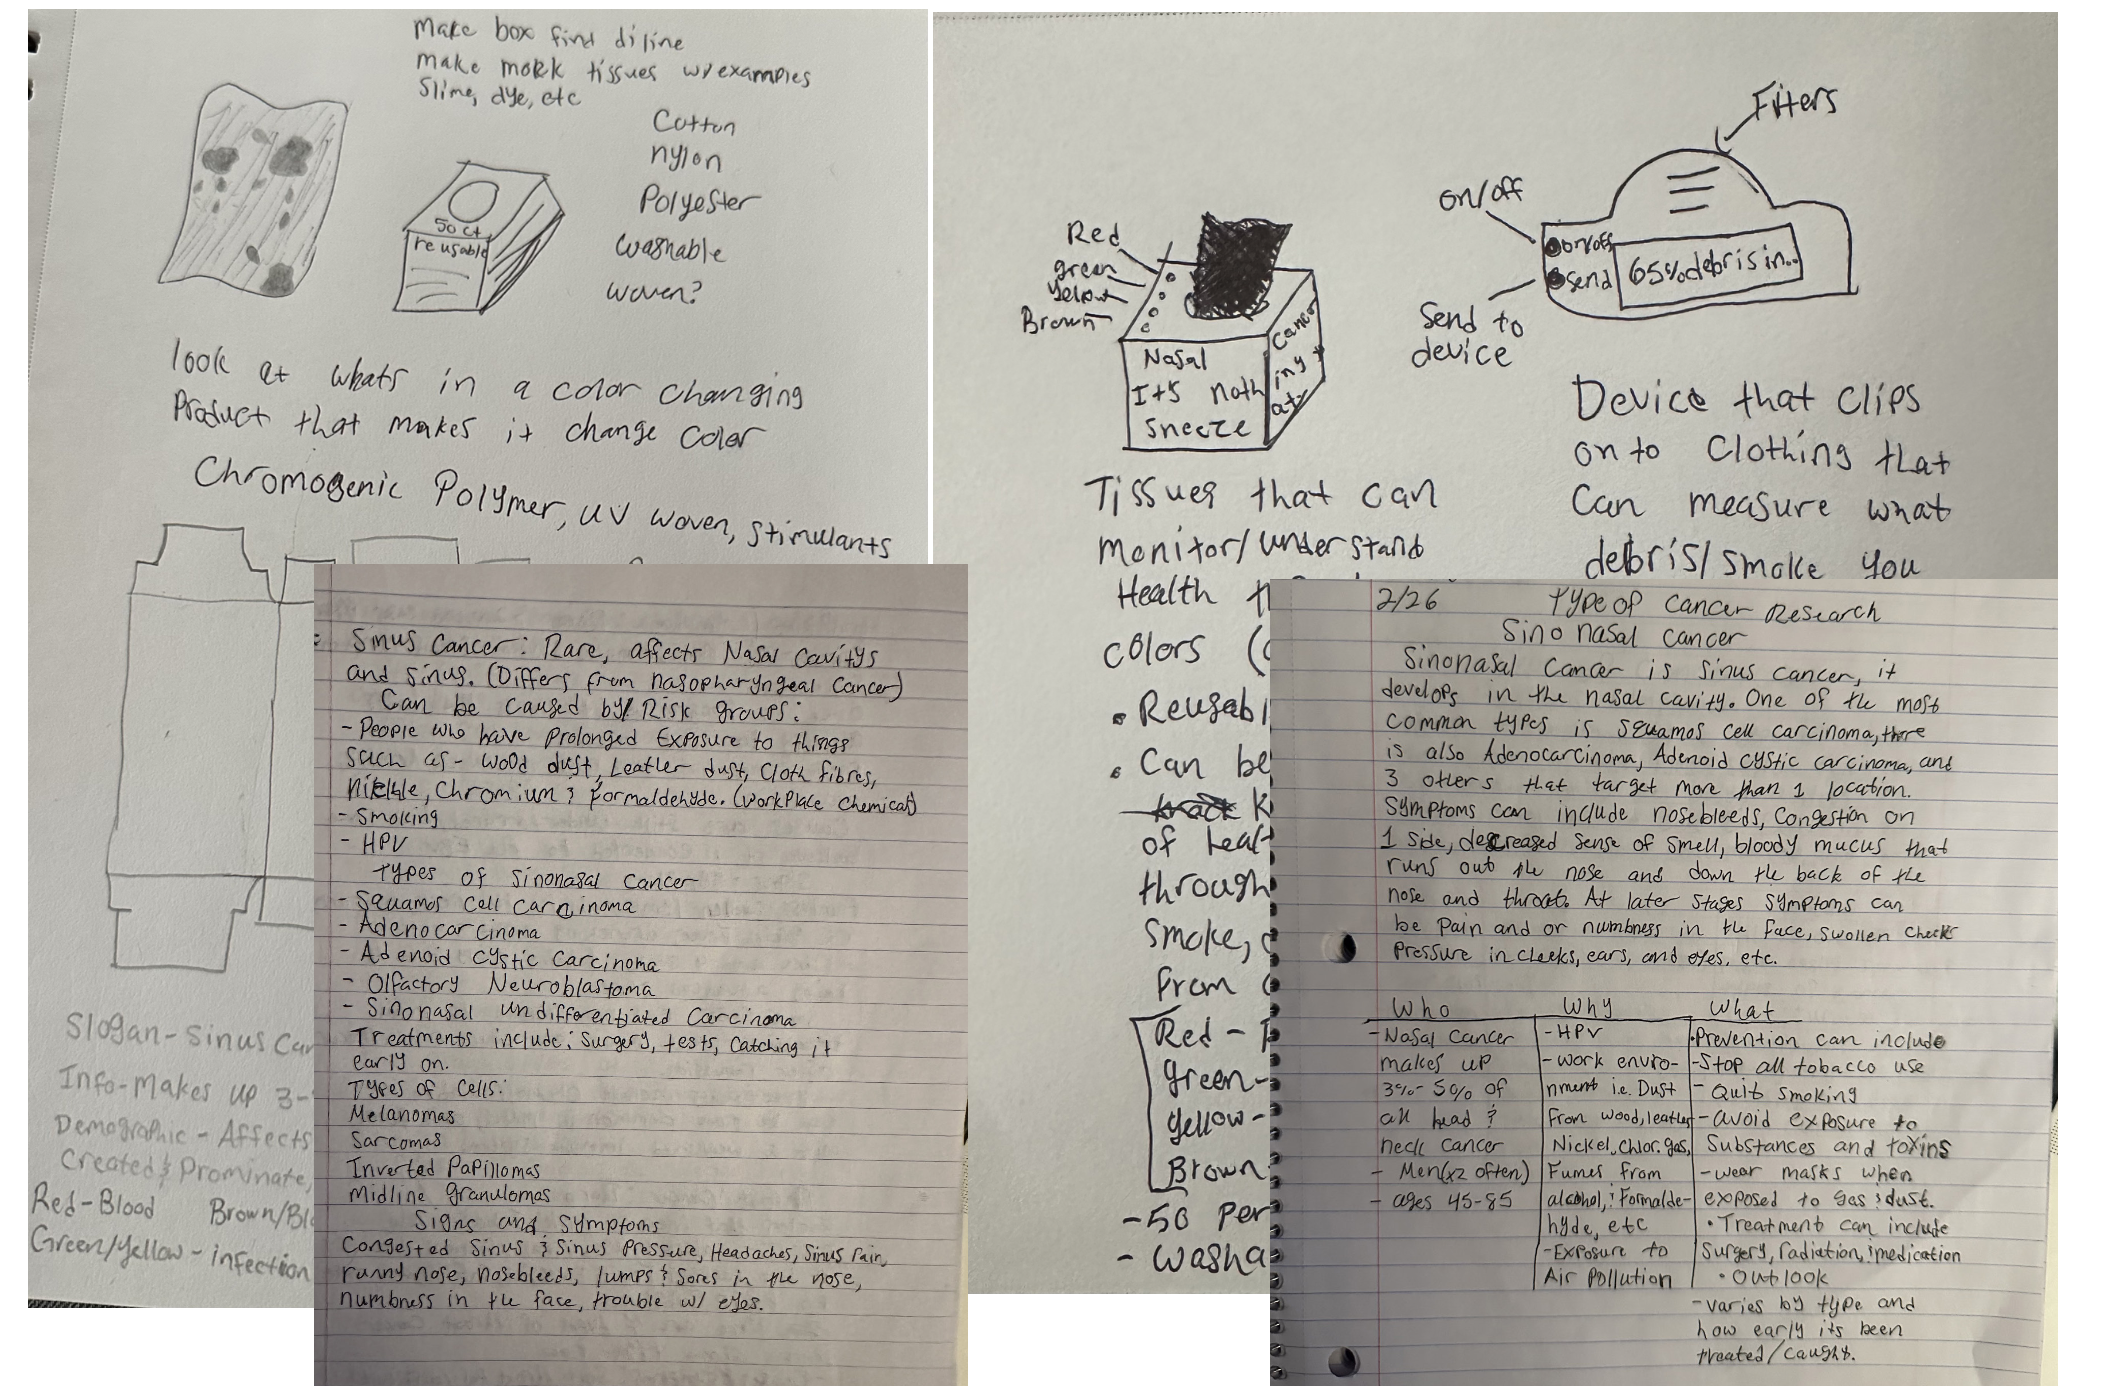 Make box find diline
make mokk tissues w/examples
Slime, dye, etc
Cotton
nylon
Polyester
washable
woven?
50 ct
reusable
look at whats in a color changing
Product that makes it change color
Chromogenic Polymer, UV woven, stimulants
Slogan-Sinus Can
Info-Makes up 3-
Demographic - Affects
Created & Prominate,
Red-Blood Brown/Bl
Green/yellow - infection
Red
green
Yellow
Brown
Nasal
It's noth
Sneeze
Cancer
iny
at
Filters
on/off
on/off
send
65% debris in..
Send to
device
Tissues that can
monitor/understand
Health
colors
• Reusabl
• Can be
of heal
through
Smoke,
From
Red -
green-
yellow-
Brown
-50 Per
- washa
Device that clips
on to Clothing that
Can measure what
debris/smoke you
Sinus Cancer: Rare, affects Nasal Cavitys
and sinus. (Differs from nasopharyngeal cancer)
Can be caused by/Risk groups:
- People who have Prolonged Exposure to things
such as - wood dust, Leatler dust, Cloth fibres,
Chromium & Formaldehyde. (WorkPlace Chemicals)
- Smoking
- HPV
Types of Sinonasal Cancer
- Squamos Cell Carcinoma
- Adenocarcinoma
- Adenoid Cystic Carcinoma
- Olfactory Neuroblastoma
- Sinonasal undifferentiated Carcinoma
Treatments include: Surgery, tests, Catching it
early on.
Types of Cells:
Melanomas
Sarcomas
Inverted Papillomas
Midline granulomas
Signs and Symptoms
Congested Sinus & Sinus Pressure, Headaches, Sinus Pain,
runny nose, nosebleeds, lumps & Sores in the nose,
numbness in the face, trouble w/ eyes.
2/26 Type of Cancer Research
Sino nasal cancer
Sinonasal Cancer is Sinus cancer, it
develops in the nasal cavity. One of the most
common types is squamos cell carcinoma, there
is also Adenocarcinoma, Adenoid cystic carcinoma, and
3 others that target more than 1 location.
Symptoms can include nosebleeds, Congestion on
1 side, decreased sense of smell, bloody mucus that
runs out the nose and down the back of the
nose and throat. At later stages symptoms can
be Pain and or numbness in the face, swollen cheeks
Pressure in cheeks, ears, and eyes, etc.
Who Why What
- Nasal Cancer
makes up
3%- 5% of
all head &
neck cancer
- Men(x2 often)
- ages 45-85
- HPV
- work enviro-
nment i.e. Dust
From wood, leatler
Nickel, Chlor. gas,
Fumes from
alcohol, & Formalde-
hyde, etc
- Exposure to
Air Pollution
• Prevention can include
- Stop all tobacco use
- Quit smoking
- avoid exposure to
Substances and toxins
- wear masks when
exposed to gas & dust.
• Treatment can include
Surgery, radiation, & medication
• Outlook
- varies by type and
how early its been
treated/caught.